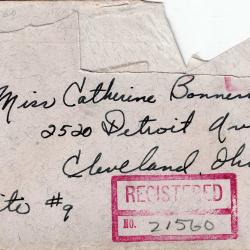 Miss Catherine Bonner
2520 Detroit Av
Cleveland, Ohi
#9
REGISTERED
NO. 21560